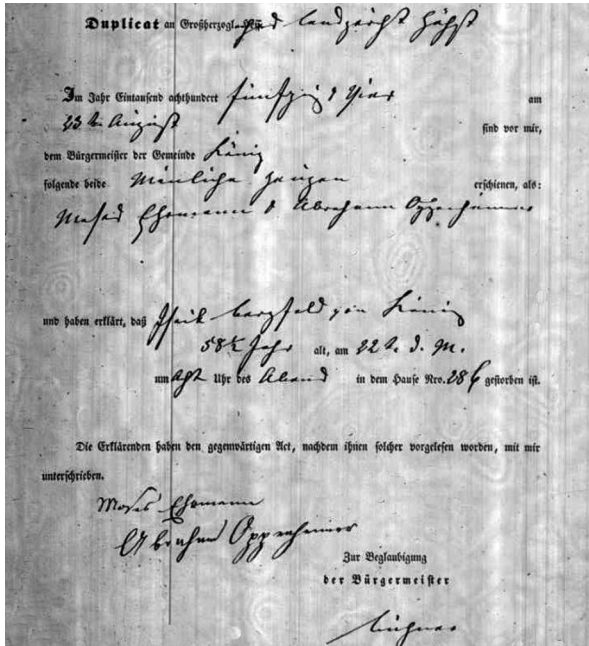 Duplicat an Großherzogl. Landgericht Höchst
Im Jahr Eintausend achthundert fünfzig & Vier am
23ten August sind vor mir,
dem Bürgermeister der Gemeinde König
folgende beide Männliche Zeugen erschienen, als:
Moses Ehemann & Abraham Oppenheimer
und haben erklärt, daß Bergfeld von König
58½ Jahr alt, am 22t. d. M.
um Uhr des Abend in dem Hause Nro. 286 gestorben ist.
Die Erklärenden haben den gegenwärtigen Act, nachdem ihnen solcher vorgelesen worden, mit mir
unterschrieben.
Moses Ehemann
Abraham Oppenheimer
Zur Beglaubigung
der Bürgermeister